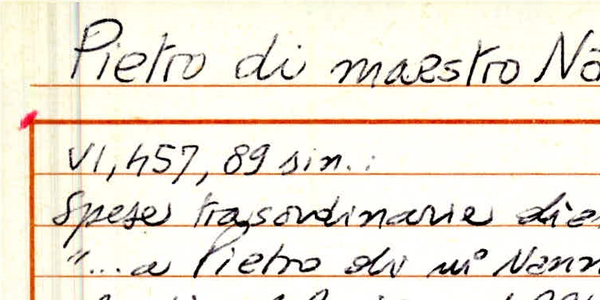 Pietro di maestro Na
VI, 457, 89 sin.:
Spese trasordinarie die
"... a Pietro di m° Nann